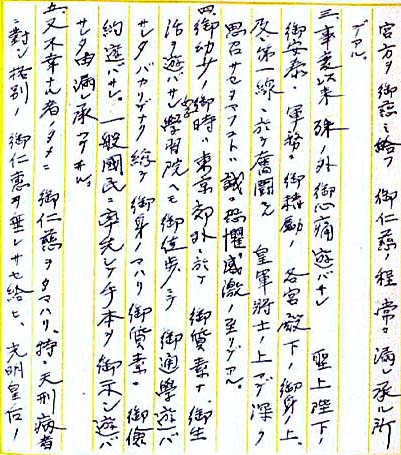 宮方ヲ御慈ミ給フ御仁慈ノ程常々漏レ承ル所
デアル。
三、事変以来殊ノ外御心痛遊バサレ 聖上陛下ノ
御安泰・軍務ニ御精励ノ各宮殿下ノ御身ノ上、
及第一線ニ於テ奮闘スル 皇軍将士ノ上マデ深ク
思召サセタマフコトハ誠ニ恐懼感激ノ至リデアル。
四、御幼少ノ御時ハ東京郊外ニ於テ御質素ナ御生
活ヲ遊バサレ学習院ヘモ御徒歩ニテ御通學遊バ
サレタバカリデナク総テ御身ノマハリ御質素ニ御倹
約遊バサレ。一般國民ニ率先シテ手本ヲ御示シ遊バ
サレタ由漏レ承ッテヰル。
五、又不幸ナ者ノタメニ御仁慈ヲタマハリ、特ニ天刑病者
ニ對シ格別ノ御仁恵ヲ垂レサセ給ヒ、光明皇后ノ